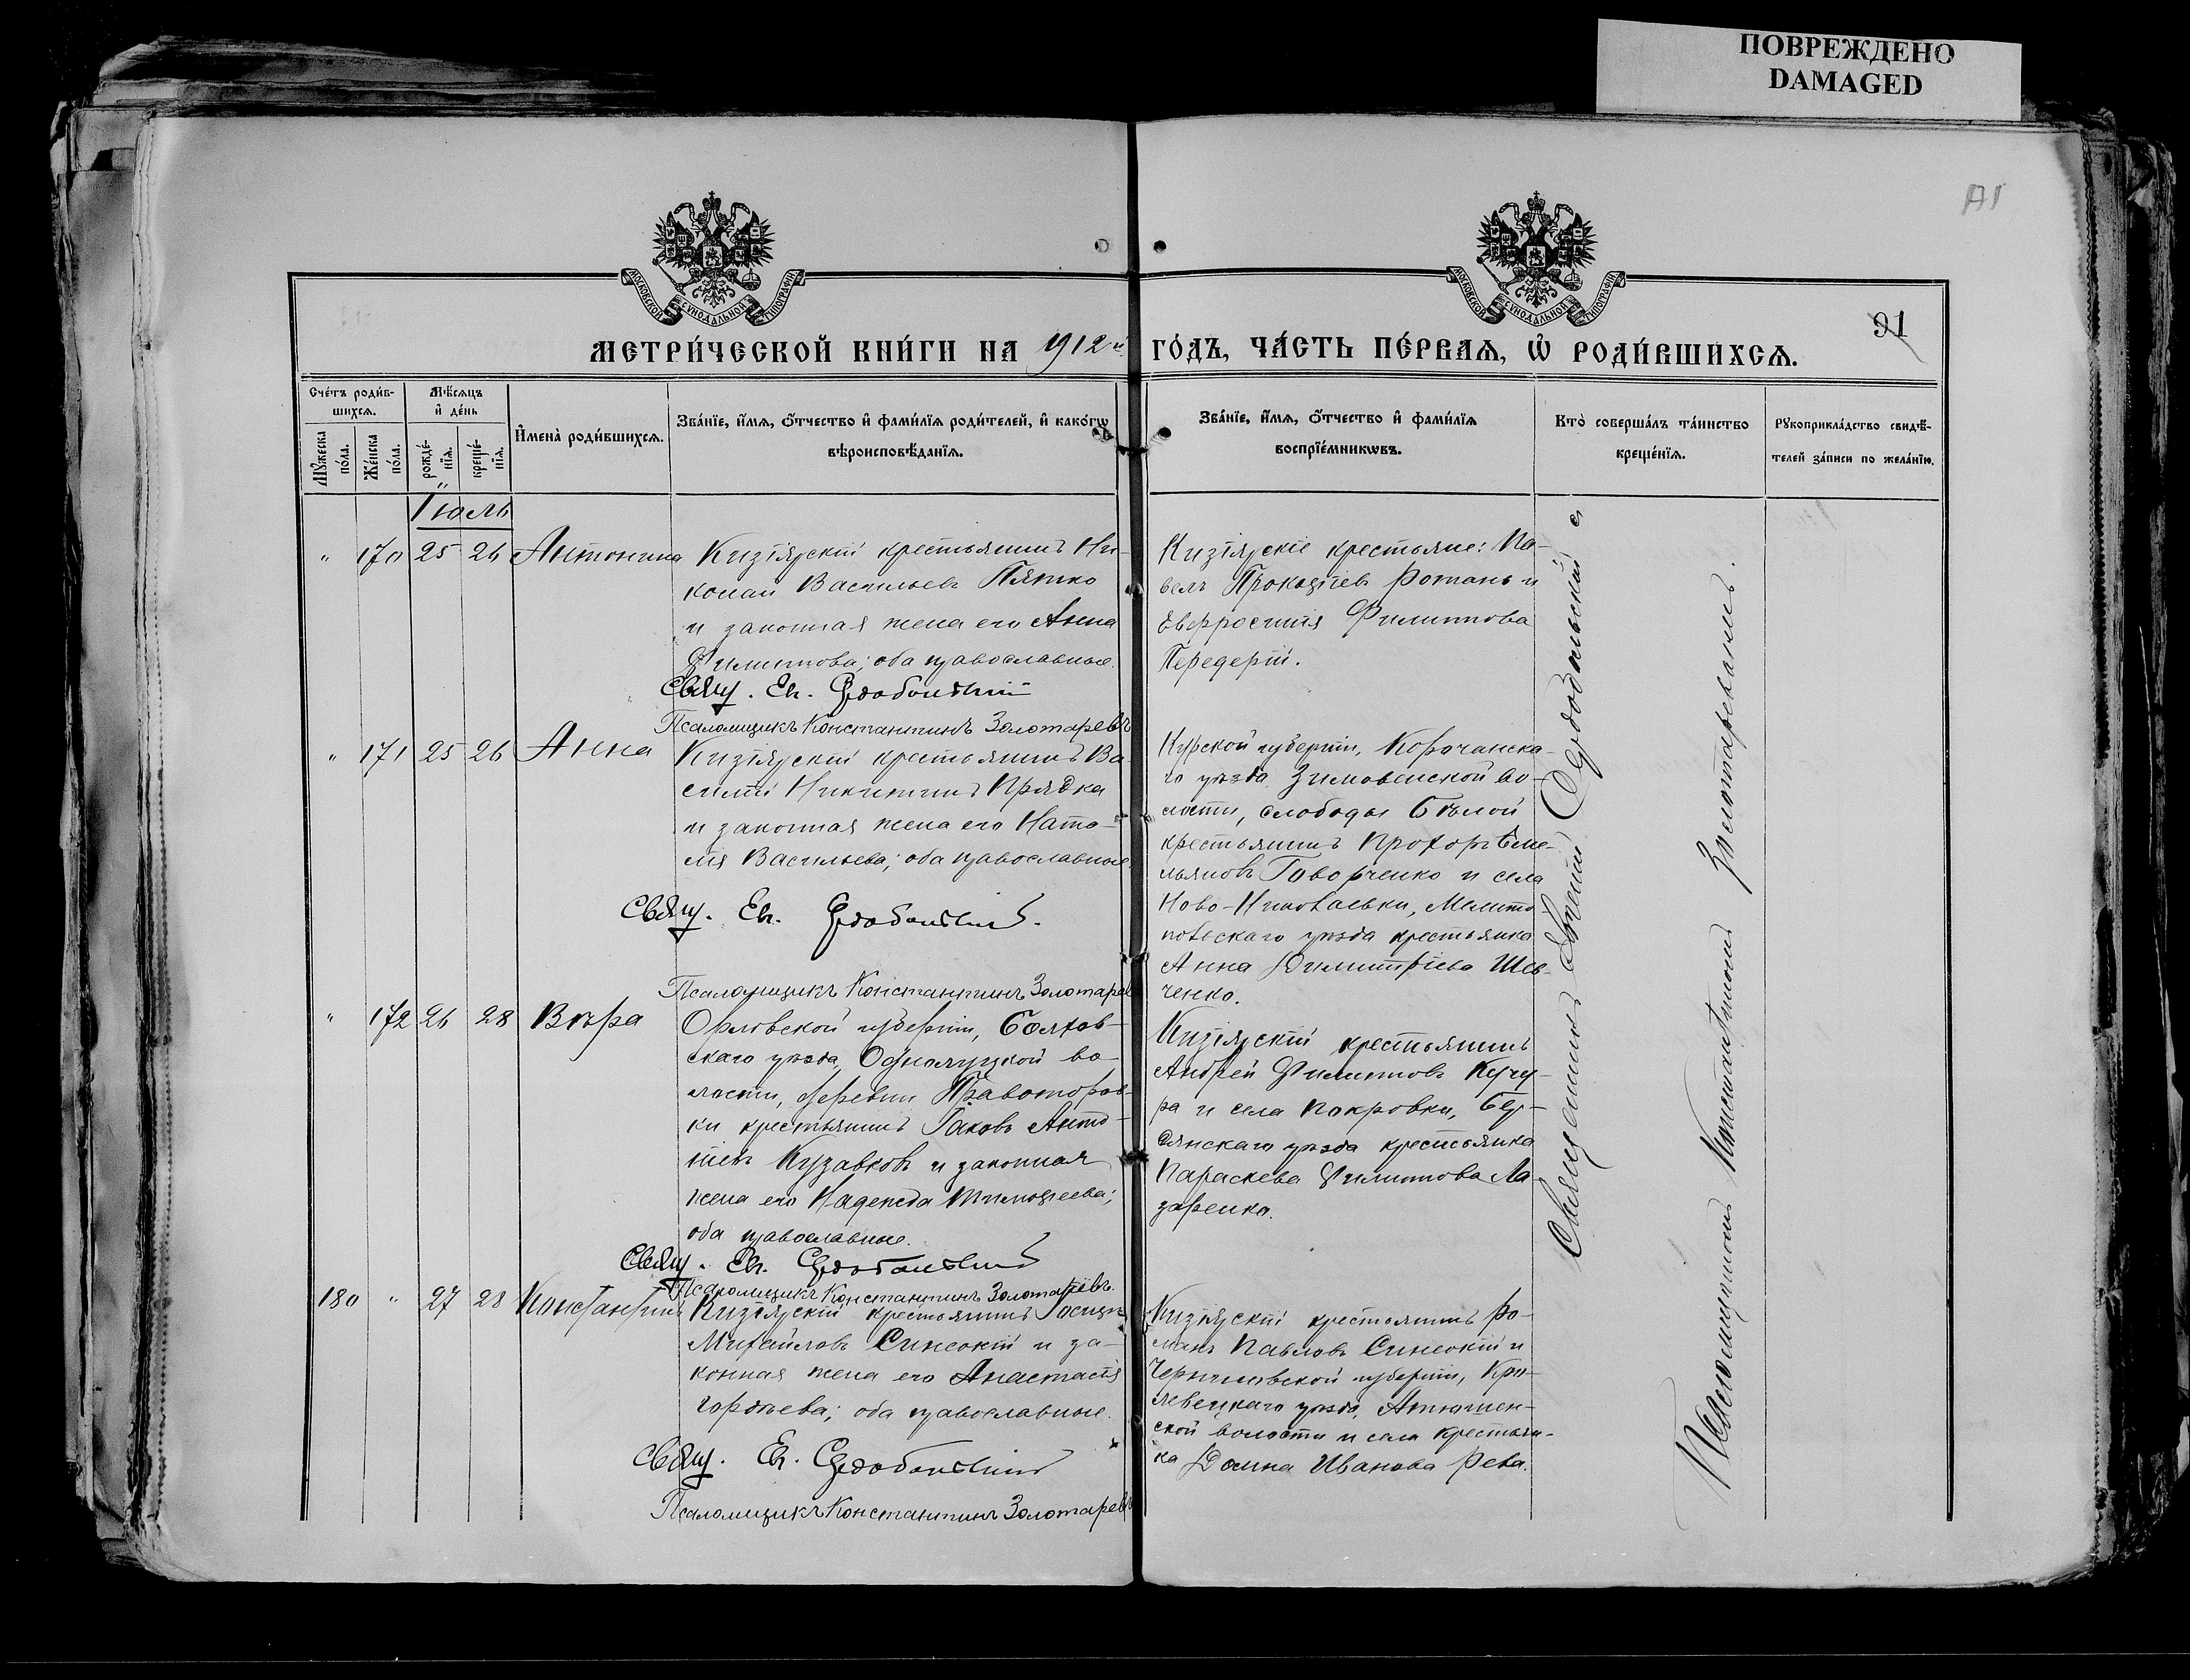 ПОВРЕЖДЕНО
DAMAGED
91
МОСКОВСКОЙ СѴНОДАЛЬНОЙ ТИПОГРАФІИ
МОСКОВСКОЙ СѴНОДАЛЬНОЙ ТИПОГРАФІИ
МЕТРИ́ЧЕСКОЙ КНИ́ГИ НА 1912й ГО́ДЪ, ЧА́СТЬ ПЕ́РВАѦ, Ѡ҆ РОДИ́ВШИХСѦ.
Сче́тъ роди́в-
шихсѧ.
Мꙋжеска по́ла.
Же́нска по́ла.
Мѣ́сѧцъ
и҆ де́нь
рожде́-
нїѧ.
креще́-
нїѧ.
И҆мена̀ роди́вшихсѧ.
Зва́нїе, и҆́мѧ, ѻ҆́тчество и҆ фами́лїѧ роди́телей, и҆ како́гѡ
вѣроисповѣ́данїѧ.
Зва́нїе, и҆́мѧ, ѻ҆́тчество и҆ фами́лїѧ
воспрїе́мникѡвъ.
Кто̀ соверша́лъ та́инство
креще́нїѧ.
Рꙋкоприкла́дство свидѣ́-
телей за́писи по жела́нїю.
Іюль
" 170 25 26 Антонина
Кизіярскій крестьянинъ Ни-
колай Васильевъ Пятко
и законная жена его Анна
Филиппова; оба православные.
Свящ. Ев. Сдобольскій
Псаломщикъ Константинъ Золотаревъ
Кизіярскіе крестьяне: Па-
велъ Прокопіевъ Ротань и
Евфросинія Филиппова
Передерій.
" 171 25 26 Анна
Кизіярскій крестьянинъ Ва-
силій Никитинъ Прядка
и законная жена его Ната-
лія Васильева; оба православные
Свящ. Ев. Сдобольскій.
Псаломщикъ Константинъ Золотарев
Курской губерніи, Корочанска-
го уѣзда Зимовенской во-
лости, слободы Бѣлой
крестьянинъ Прохоръ Еме-
льяновъ Говорченко и села
Ново-Николаевки, Мелито-
польскаго уѣзда крестьянка
Анна Димитріева Шев-
ченко.
" 172 26 28 Вѣра
Орловской губерніи, Болхов-
скаго уѣзда, Однолуцкой во-
лости, деревни Правоторов-
ки крестьянинъ Іаковъ Анто-
ніевъ Кузавковъ и законная
жена его Надежда Тимоѳеева;
оба православные.
Свящ. Ев. Сдобольскій
Псаломщикъ Константинъ Золотаревъ.
Кизіярскій крестьянинъ
Андрей Филипповъ Кучу-
ра и села Покровки, Бер-
дянскаго уѣзда крестьянка
Параскева Филиппова Ла-
заренко.
180 " 27 28 Константинъ
Кизіярскій крестьянинъ Іосифъ
Михайловъ Синеокій и за-
конная жена его Анастасія
Гордѣева; оба православные.
Свящ. Ев. Сдобольскій
Псаломщикъ Константинъ Золотаревъ
Кизіярскій крестьянинъ Ро-
манъ Павловъ Синеокій и
Черниговской губерніи, Кро-
левецкаго уѣзда, Атюшен-
ской волости и села крестьян-
ка Домна Иванова Рева.
Священникъ Евгеній Сдобольскій съ
Псаломщикомъ Константиномъ Золотаревымъ.